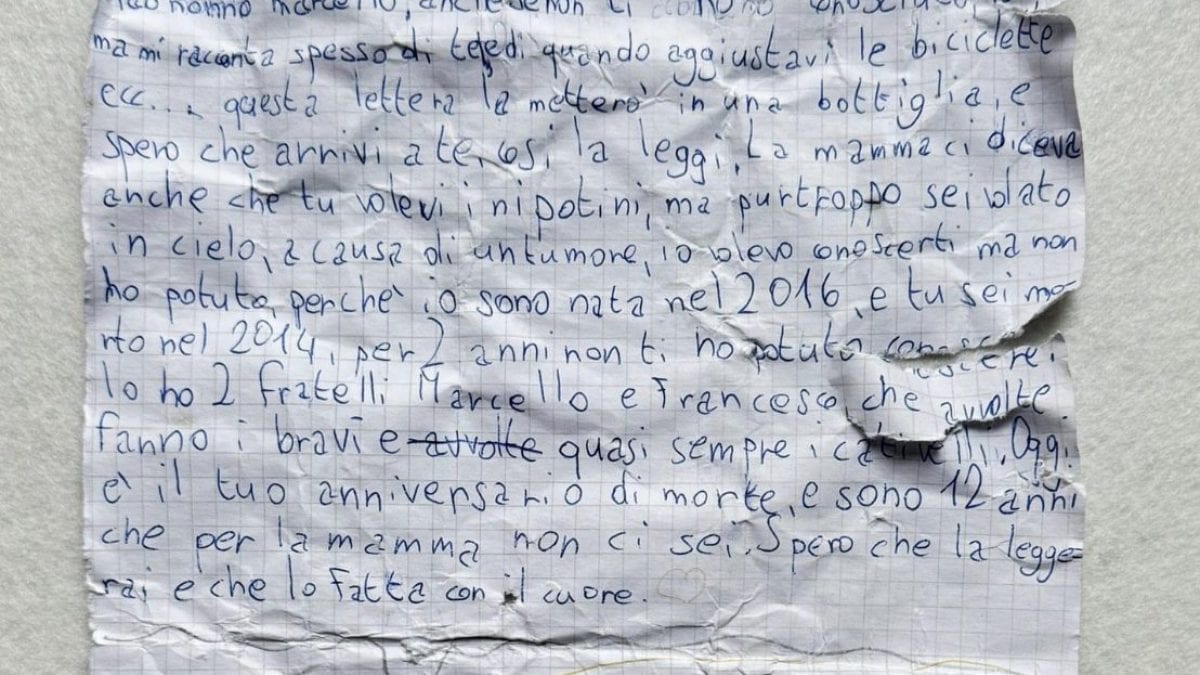 nonno Marcello, anche se non ti
ma mi racconta spesso di te, e di quando aggiustavi le biciclette
ecc... questa lettera la metterò in una bottiglia, e
spero che arrivi a te, così la leggi. La mamma ci diceva
anche che tu volevi i nipotini, ma purtroppo sei volato
in cielo, a causa di un tumore, io volevo conoscerti ma non
ho potuto, perchè io sono nata nel 2016, e tu sei mo-
rto nel 2014, per 2 anni non ti ho potuto conoscere.
Io ho 2 fratelli Marcello e Francesco che avvolte
fanno i bravi e avvolte quasi sempre i cattivelli. Oggi
è il tuo anniversario di morte, e sono 12 anni
che per la mamma non ci sei. Spero che la legge-
rai e che lo fatta con il cuore.